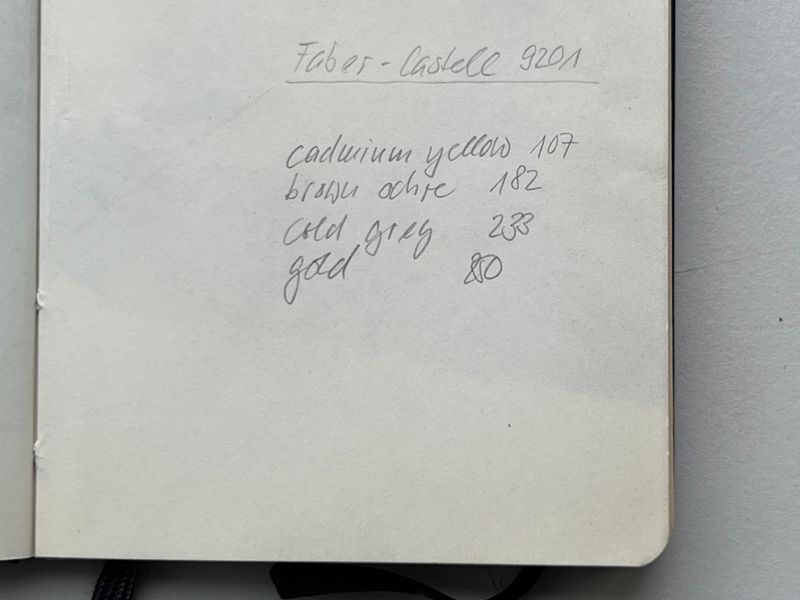 Faber-Castell 9201
cadmium yellow 107
brown ochre 182
cold grey 233
gold